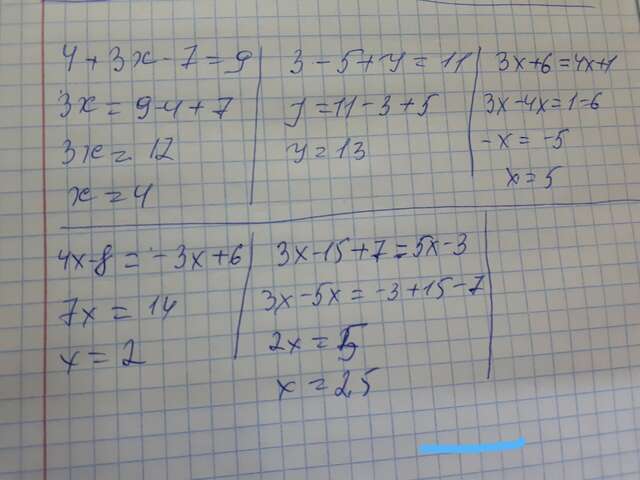 4 + 3x - 7 = 9
3x = 9-4+7
3x = 12
x = 4
3 - 5 + y = 11
y = 11 - 3 + 5
y = 13
3x+6 = 4x+1
3x-4x = 1-6
-x = -5
x = 5
4x-8 = -3x+6
7x = 14
x = 2
3x-15+7 = 5x-3
3x-5x = -3+15-7
2x = 5
x = 25